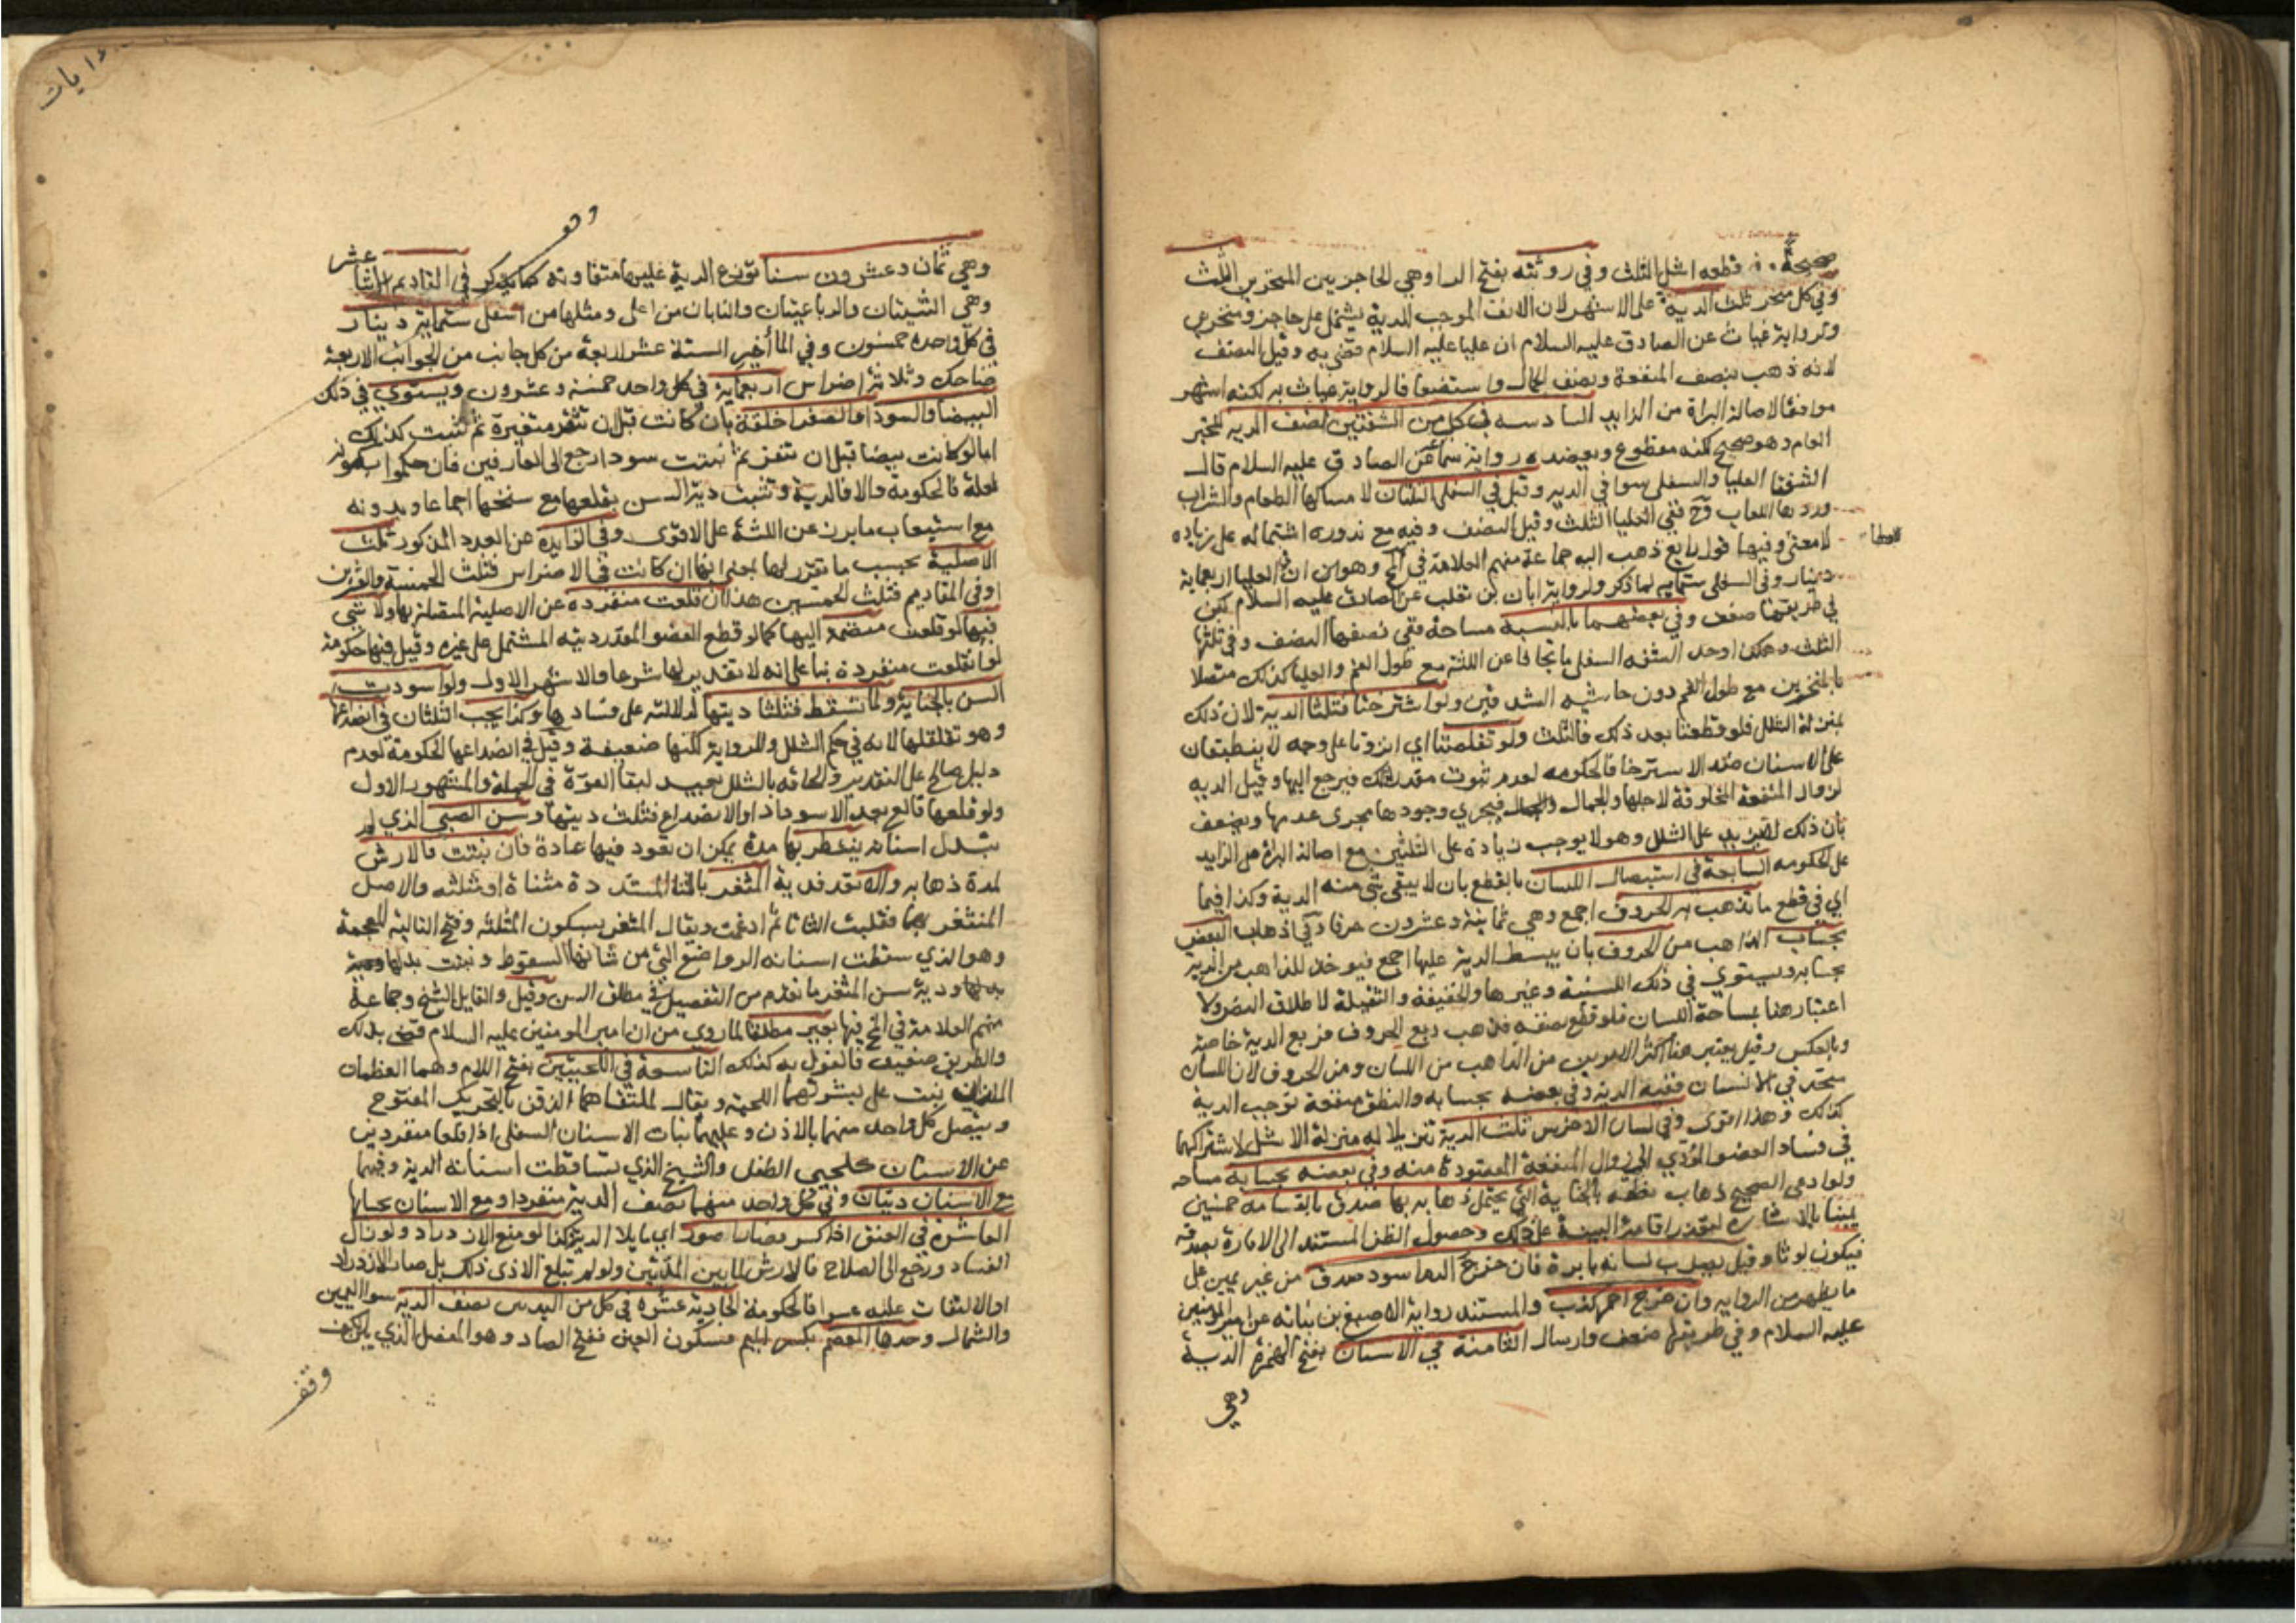 صحيحة و في قطعه اشل الثلث و في روثته بفتح الرا وهي الحاجز بين المنخرين الثلث
وفي كل منخر ثلث الدية على الاشهر لان الانف الموجب للدية يشتمل على حاجز ومنخرين
ولرواية غياث عن الصادق عليه السلام ان عليا عليه السلام قضى به وقيل النصف
لانه ذهب بنصف المنفعة ونصف الجمال واستضعافا لرواية غياث به لكنه اشهر
موافقا لاصالة البراة من الزايد السادسه في كل من الشفتين نصف الديه للخبر
العام وهو صحيح لكنه مقطوع ويعضده رواية سماعة عن الصادق عليه السلام قال
الشفتا العليا والسفلى سوا في الديه وقيل في السفلى الثلثان لامساكها الطعام والشراب
وردها اللعاب وح ففي العليا الثلث وقيل النصف وفيه مع ندوره اشتماله على زياده
لا معنى وفيها قول رابع ذهب اليه جماعة منهم العلامة في لخ وهو ان في العليا اربعماية
دينار وفي السفلى ستمايه لما ذكر ولرواية ابان بن تغلب عن الصادق عليه السلام لكن
في طريقها ضعف وفي بعضهما بالنسبة مساحة ففي نصفها النصف وفي ثلثها
الثلث وهكذا وحد الشفه السفلى ما تجافا عن اللثة مع طول الفم والعليا كذلك متصلا
بالمنخرين مع طول الفم دون حاشيه الشدقين ولو استرختا فثلثا الدية لان ذلك
بمنزلة الشلل فلو قطعتا بعد ذلك فالثلث ولو تقلصتا اي انزوتا على وجه لا ينطبقان
على الاسنان ضد الاسترخا فالحكومه لعدم ثبوت مقدر لذلك فيرجع اليها وقيل الديه
لزوال المنفعة المخلوقة لاجلها والجمال فيجري وجودها مجرى عدمها ويضعف
بان ذلك لا يزيد على الشلل وهو لا يوجب زيادة على الثلثين مع اصالة البراة من الزايد
على الحكومه السابعة في استيصال اللسان بالقطع بان لا يبقى شي منه الدية وكذا فيما
اي في قطع ما تذهب به الحروف اجمع وهي ثمانية وعشرون حرفا وفي اذهاب البعض
بحساب الذاهب من الحروف بان يبسط الدية عليها اجمع فيوخذ للذاهب من الدية
بحسابه ويستوي في ذلك اللسنية وغيرها والخفيفة والثقيلة لاطلاق النص ولا
اعتبار هنا بمساحة اللسان فلو قطع نصفه فذهب ربع الحروف فربع الدية خاصة
وبالعكس وقيل يعتبر هنا اكثر الامرين من الذاهب من اللسان ومن الحروف لان اللسان
متحد في الانسان ففيه الدية وفي بعضه بحسابه والنطق منفعة توجب الدية
كذلك وهذا اقوى وفي لسان الاخرس ثلث الدية تنزيلا له منزلة الاشل لاشتراكهما
في فساد العضو المؤدي الى زوال المنفعة المقصودة منه وفي بعضه بحسابه مساحه
ولو ادعى الصحيح ذهاب نطقه بالجناية التي يحتمل ذهابه بها صدق بالقسامه خمسين
يمينا بالاشاره لتعذر اقامة البينة على ذلك وحصول الظن المستند الى الامارة بصدقه
فيكون لوثا وقيل يضرب لسانه بابرة فان خرج الدم اسود صدق من غير يمين على
ما يظهر من الروايه وان خرج احمر كذب والمستند رواية الاصبغ بن نباته عن امير المومنين
عليه السلام وفي طريقها ضعف وارسال الثامنة في الاسنان بفتح الهمزة الدية
وهي
وهي ثمان وعشرون سنا توزع الدية عليها متفاوتة كما يذكر في المقاديم الاثنا عشر
وهي الثنيتان والرباعيتان والنابان من اعلى ومثلها من اسفل ستماية دينار
في كل واحده خمسون وفي المآخير الستة عشر اربعة من كل جانب من الجوانب الاربعة
ضاحك وثلاثة اضراس اربعماية في كل واحد خمسة وعشرون ويستوي في ذلك
البيضا والسودا والصفرا خلقة بان كانت قبل ان تثغر متغيرة ثم نبتت كذلك
اما لو كانت بيضا قبل ان تثغر ثم نبتت سودا رجع الى العارفين فان حكموا بكونه
لعلة فالحكومة والا فالدية وتثبت دية السن بقلعها مع سنخها اجماعا وبدونه
مع استيعاب ما برز عن اللثة على الاقوى وفي الزايدة عن العدد المذكور ثلث
الاصلية بحسب ما تقرر لها بمعنى انها ان كانت في الاضراس فثلث الخمسة والعشرين
او في المقاديم فثلث الخمسين هذا ان قلعت منفرده عن الاصلية المتصلة بها ولا شي
فيها لو قلعت منضمة اليها كما لو قطع العضو المقدر ديته المشتمل على غيره وقيل فيها حكومة
لو انقلعت منفردة بنا على انه لا تقدير لها شرعا والاشهر الاول ولو اسودت
السن بالجناية ولما تسقط فثلثا ديتها لدلالته على فسادها وكذا يجب الثلثان في انصداعها
وهو تقلقلها لانه في حكم الشلل وللرواية لكنها ضعيفة وقيل في انصداعها الحكومة لعدم
دليل صالح على التقدير والحاقه بالشلل بعيد لبقا القوة في الجملة والمشهور الاول
ولو قلعها قالع بعد الاسوداد او الانصداع فثلث ديتها وسن الصبي الذي لم
تبدل اسنانه ينتظر بها مدة يمكن ان تعود فيها عادة فان نبتت فالارش
لمدة ذهابه والا تعد فدية المثغر بالتا المشددة مثناة او مثلثه والاصل
المثتغر بهما فقلبت الثا تا ثم ادغمت ويقال المثغر بسكون المثلثه وفتح التالية المعجمة
وهو الذي سقطت اسنانه الرواضع التي من شانها السقوط ونبتت بدلها
بدلها ودية سن المثغر ما تقدم من التفصيل في مطلق السن وقيل والقايل الشيخ وجماعة
منهم العلامة في لخ فيها بعير مطلقا لما روي من ان امير المومنين عليه السلام قضى بذلك
والطريق ضعيف فالقول به كذلك التاسعة في اللحيين بفتح اللام وهما العظمان
اللذان نبت على بشرتهما اللحية ويقال لملتقاهما الذقن بالتحريك المفتوح
ويتصل كل واحد منهما بالاذن وعليهما نبات الاسنان السفلى اذا قلعا منفردين
عن الاسنان كلحيي الطفل والشيخ الذي تساقطت اسنانه الدية وفيهما
مع الاسنان ديتان وفي كل واحد منهما نصف الدية منفردا ومع الاسنان بحسابها
العاشرة في العنق اذا كسر فصار اصور اي مايلا الدية وكذا لو منع الازدراد ولو زال
الفساد ورجع الى الصلاح فالارش لما بين المدتين ولو لم تبلغ الاذى ذلك بل صار الازدراد
او الالتفات عليه عسرا فالحكومة الحادية عشره في كل من اليدين نصف الديه سوا اليمين
والشمال وحدها المعصم بكسر الميم فسكون العين ففتح الصاد وهو المفصل الذي بين الكف